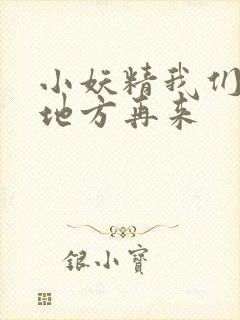 小妖精我们
地方再来
银小寶